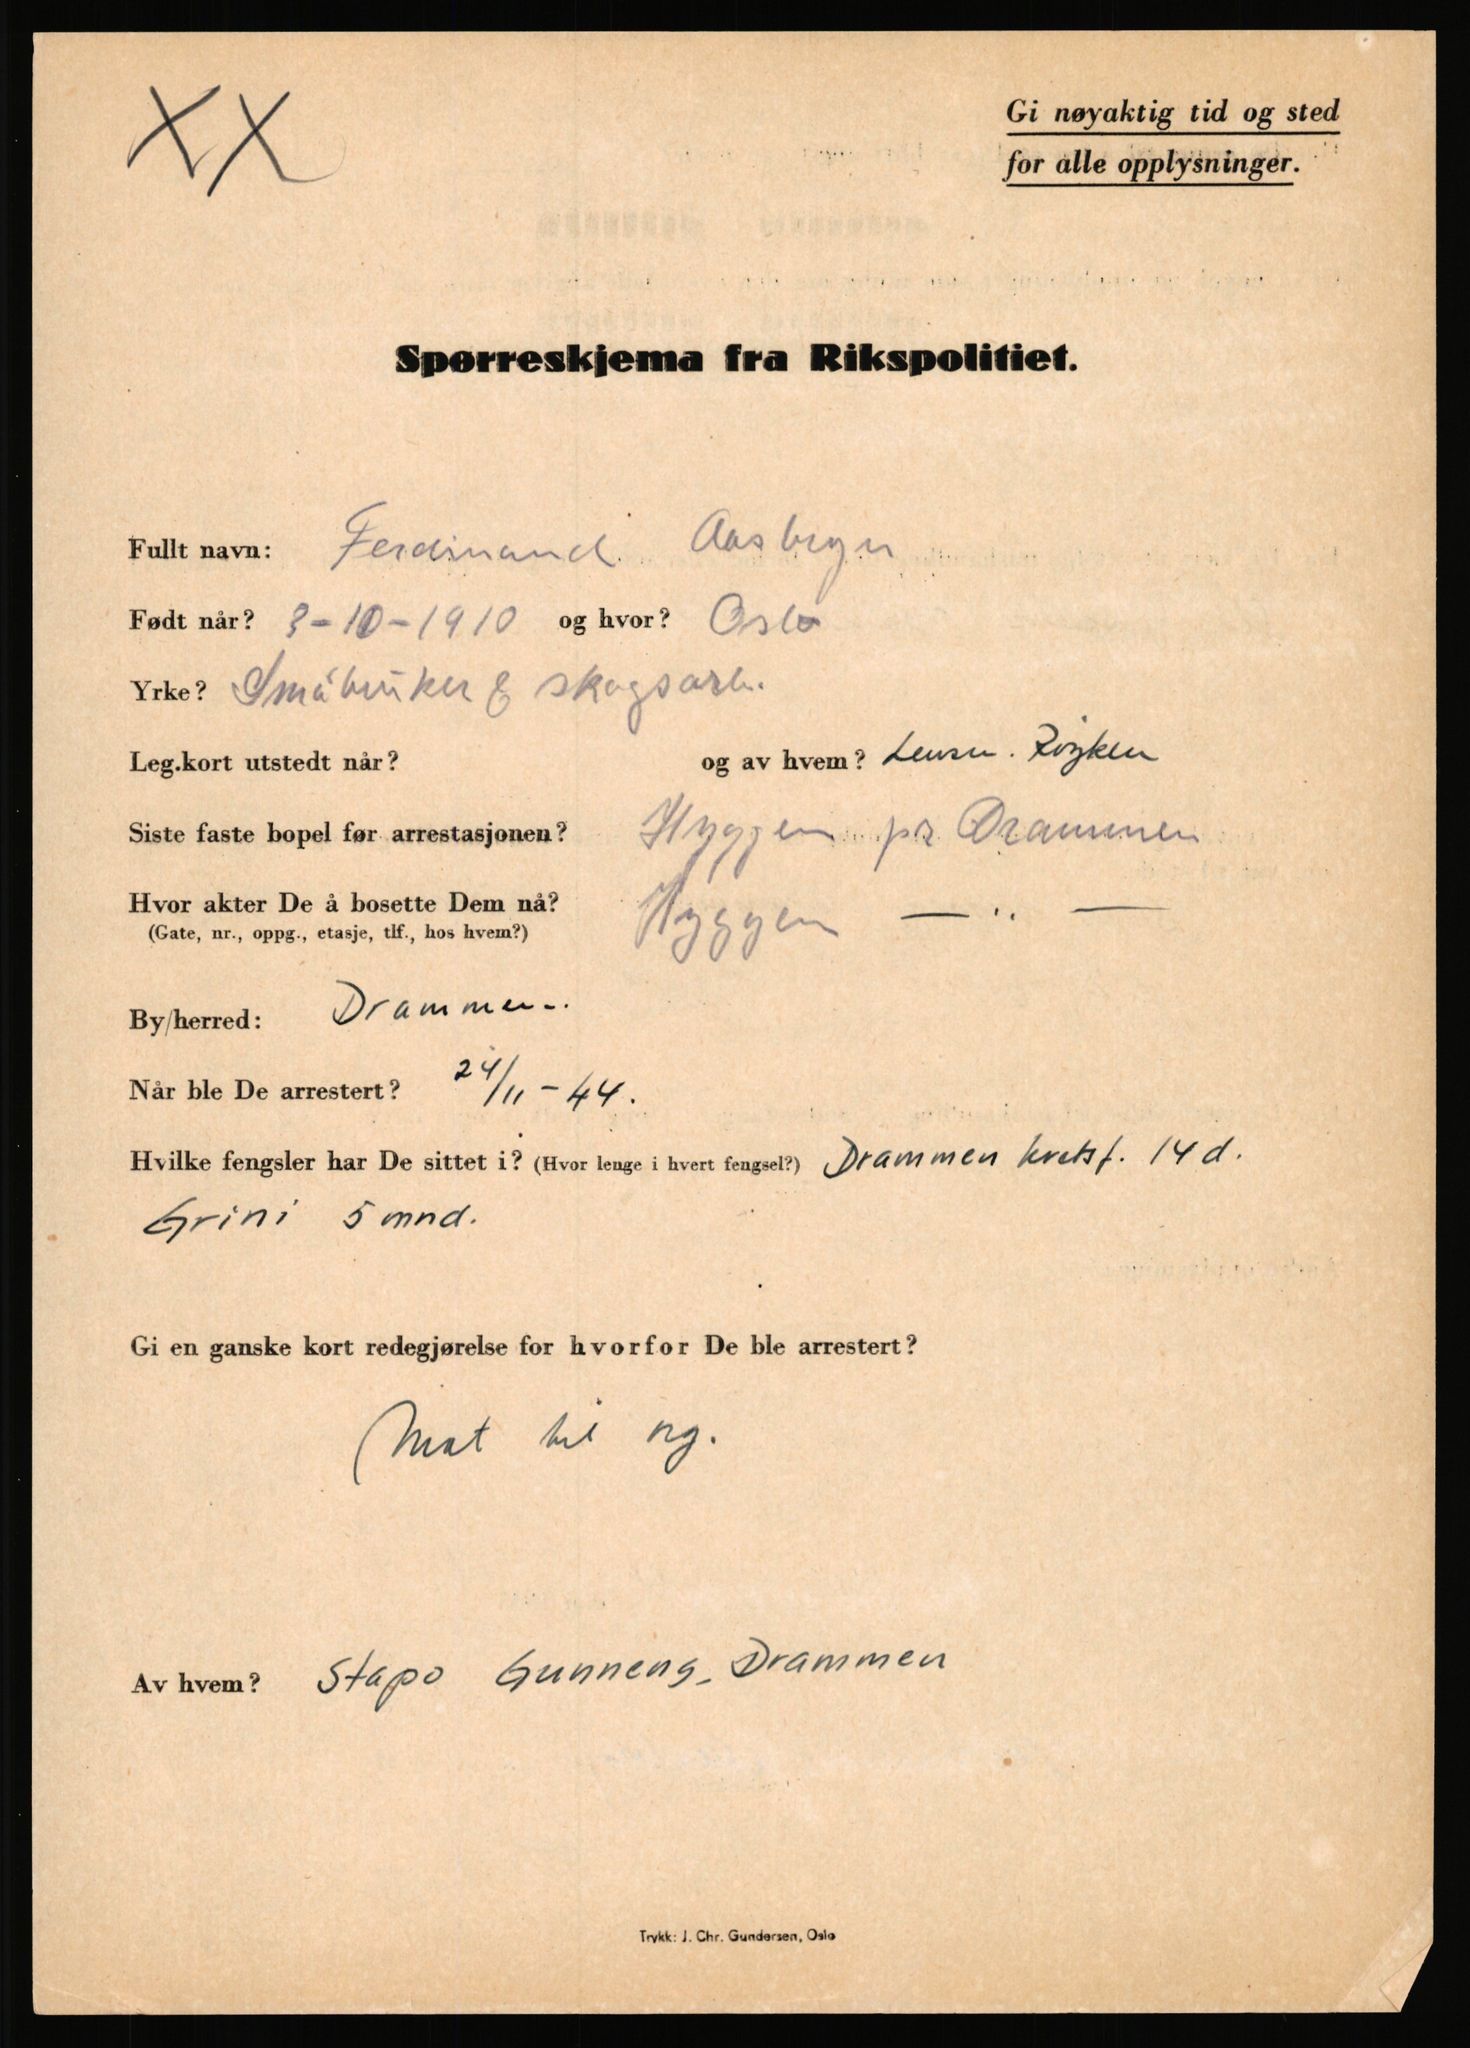 XX
Gi nøyaktig tid og sted
for alle opplysninger.
Spørreskjema fra Rikspolitiet.
Fullt navn: Ferdinand Aasbryn
Født når? 3-10-1910 og hvor? Oslo
Yrke? Småbruker & skogsarb.
Leg.kort utstedt når? og av hvem? Lensm. Røyken
Siste faste bopel før arrestasjonen? Hyggen pr Drammen
Hvor akter De å bosette Dem nå? Hyggen — „ —
(Gate, nr., oppg., etasje, tlf., hos hvem?)
By/herred: Drammen.
Når ble De arrestert? 24/11-44.
Hvilke fengsler har De sittet i? (Hvor lenge i hvert fengsel?) Drammen kretsf. 14 d.
Grini 5 mnd.
Gi en ganske kort redegjørelse for hvorfor De ble arrestert?
Mat til
Av hvem? Stapo Gunneng, Drammen
Trykk: J. Chr. Gundersen, Oslo